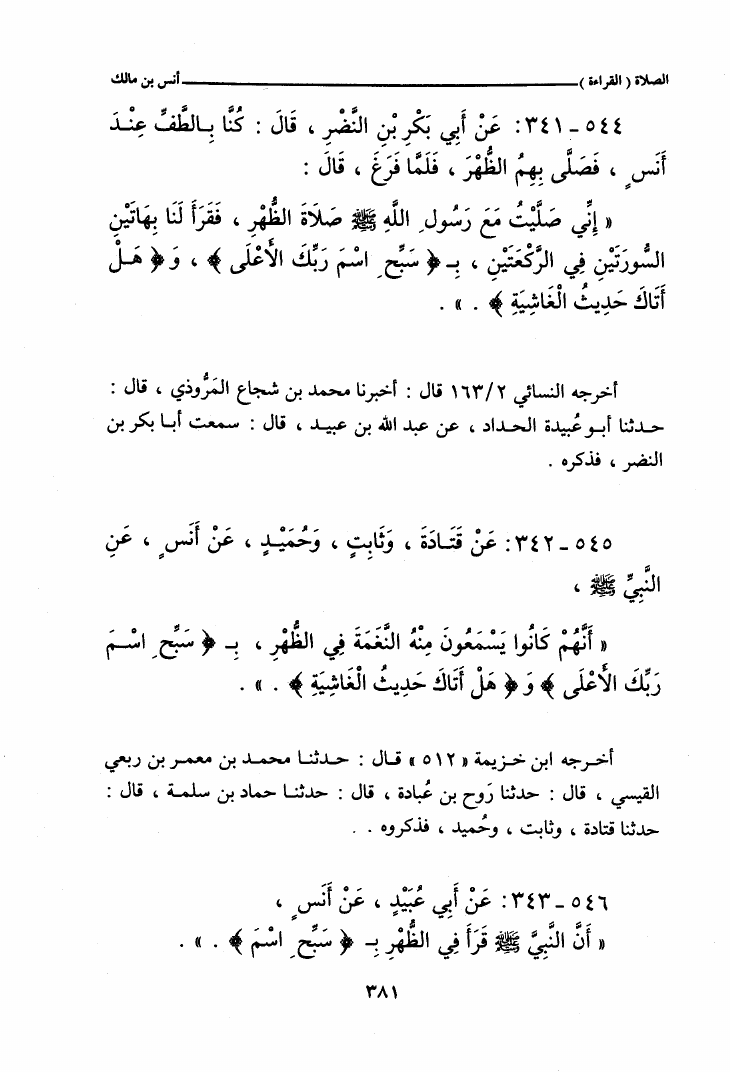 الصلاة ( القراءة ) ــــــــــــــــــــ أنس بن مالك
٥٤٤ ـ ٣٤١: عَنْ أَبِي بَكْرِ بْنِ النَّضْرِ ، قَالَ : كُنَّا بِالطَّفِّ عِنْدَ
أَنَسٍ ، فَصَلَّى بِهِمُ الظُّهْرَ ، فَلَمَّا فَرَغَ ، قَالَ :
« إِنِّي صَلَّيْتُ مَعَ رَسُولِ اللَّهِ ﷺ صَلَاةَ الظُّهْرِ ، فَقَرَأَ لَنَا بِهَاتَيْنِ
السُّورَتَيْنِ فِي الرَّكْعَتَيْنِ ، بِـ ﴿ سَبِّحِ اسْمَ رَبِّكَ الأَعْلَى ﴾ ، وَ ﴿ هَلْ
أَتَاكَ حَدِيثُ الْغَاشِيَةِ ﴾ . » .
أخرجه النسائي ١٦٣/٢ قال : أخبرنا محمد بن شجاع المَرُّوذي ، قال :
حدثنا أبو عُبيدة الحداد ، عن عبد الله بن عبيد ، قال : سمعت أبا بكر بن
النضر ، فذكره .
٥٤٥ ـ ٣٤٢: عَنْ قَتَادَةَ ، وَثَابِتٍ ، وَحُمَيْدٍ ، عَنْ أَنَسٍ ، عَنِ
النَّبِيِّ ﷺ ،
« أَنَّهُمْ كَانُوا يَسْمَعُونَ مِنْهُ النَّغَمَةَ فِي الظُّهْرِ ، بِـ ﴿ سَبِّحِ اسْمَ
رَبِّكَ الأَعْلَى ﴾ وَ ﴿ هَلْ أَتَاكَ حَدِيثُ الْغَاشِيَةِ ﴾ . » .
أخرجه ابن خزيمة « ٥١٢ » قال : حدثنا محمد بن معمر بن ربعي
القيسي ، قال : حدثنا رَوح بن عُبادة ، قال : حدثنا حماد بن سلمة ، قال :
حدثنا قتادة ، وثابت ، وحُميد ، فذكروه . .
٥٤٦ ـ ٣٤٣: عَنْ أَبِي عُبَيْدٍ ، عَنْ أَنَسٍ ،
« أَنَّ النَّبِيَّ ﷺ قَرَأَ فِي الظُّهْرِ بِـ ﴿ سَبِّحِ اسْمَ ﴾ . » .
٣٨١